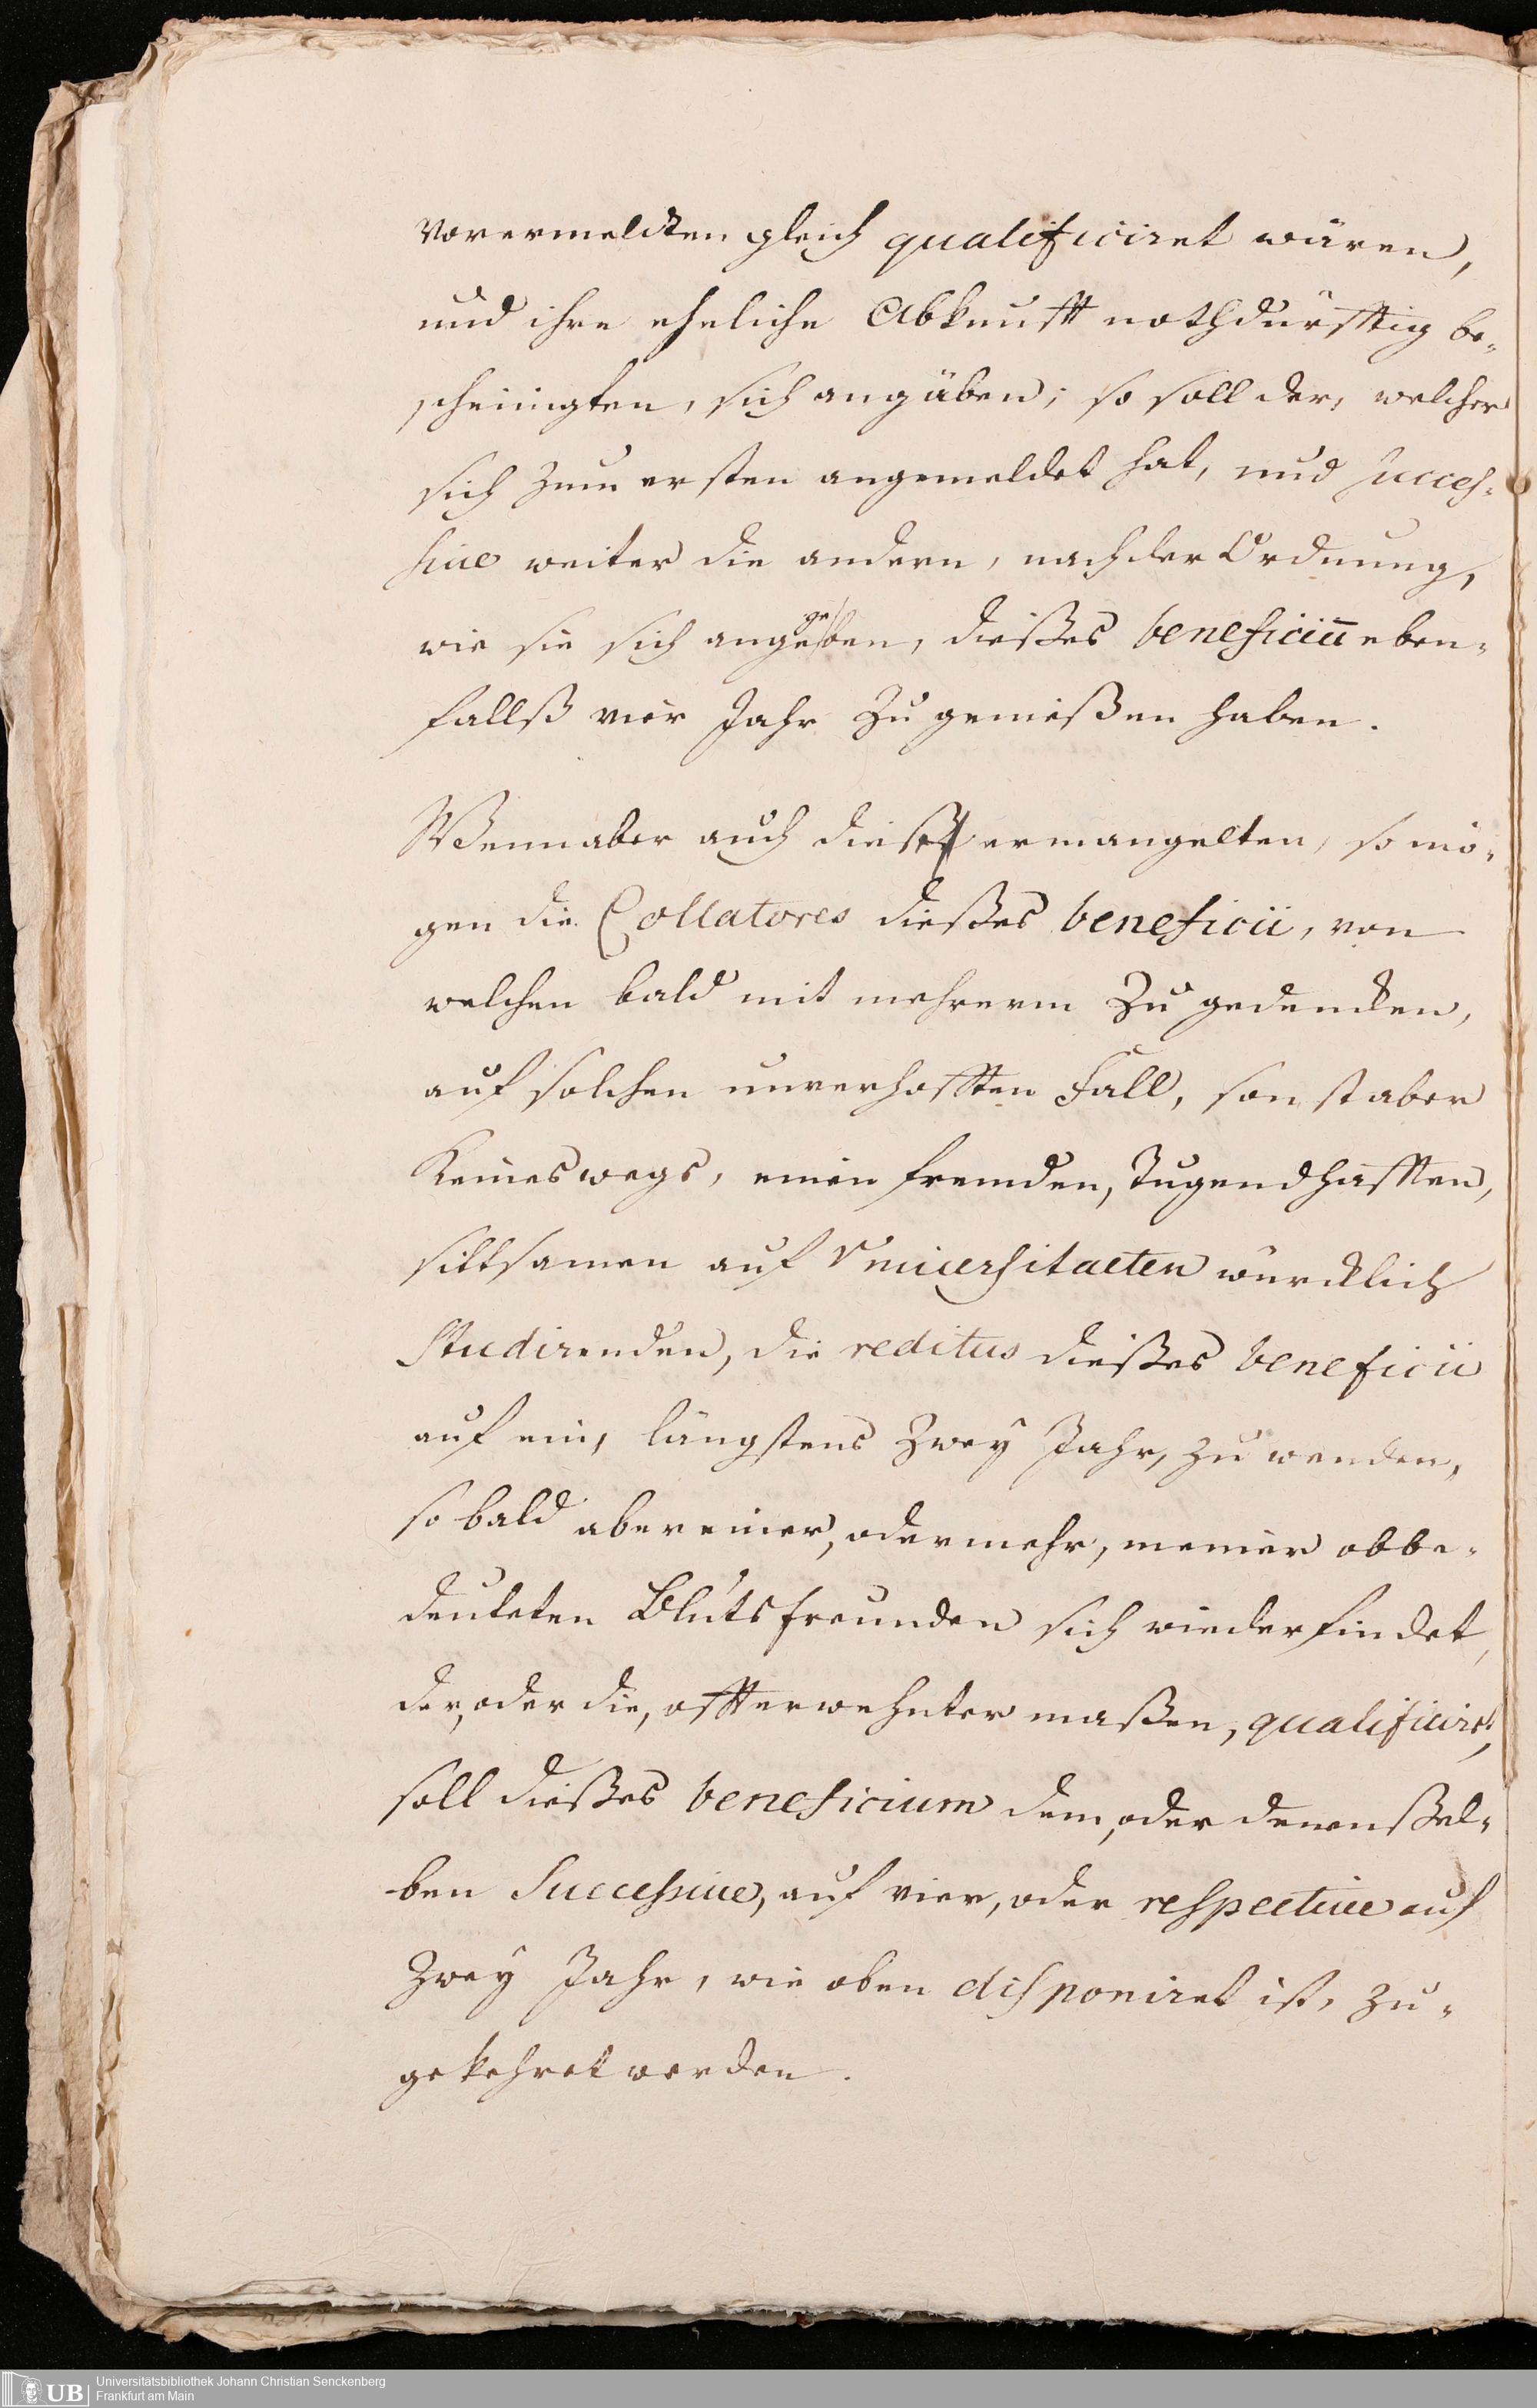 vorermeldten gleich qualificiret wären,
und ihre eheliche Abkunfft nothdürfftig be-
scheinigten, sich angäben; so soll der, welcher
sich zum ersten angemeldet hat, und succes-
sive weiter die andern, nach der Ordnung,
wie sie sich angegeben, dießes beneficiū eben-
fallß vier Jahr zu genießen haben.
Wenn aber auch diese ermangelten, so mö-
gen die Collatores dießes beneficii, von
welchen bald mit mehrerm zu gedencken,
auf solchen unverhofften Fall, sonst aber
keineswegs, einen fremden, Tugendhafften,
sittsamen auf Vniversitaeten würcklich
Studirenden, die reditus dießes beneficii
auf ein, längstens zwey Jahr, zu wenden,
so bald aber einer, oder mehr, meiner obbe-
deuteten Blutsfreunden sich wieder findet,
der, oder die, offterwehnter maßen, qualificirt,
soll dießes beneficium dem, oder denenßel-
ben Successive, auf vier, oder respective auf
zwey Jahr, wie oben disponiret ist, zu-
gekehret werden.
UB
Universitätsbibliothek Johann Christian Senckenberg
Frankfurt am Main